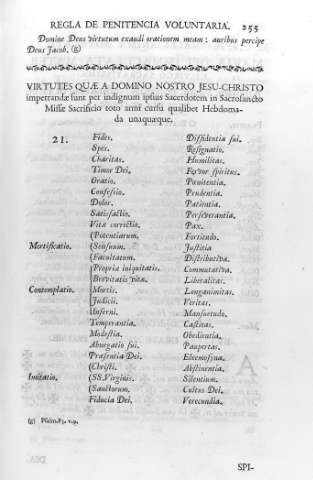 REGLA DE PENITENCIA VOLUNTARIA. 255
Domine Deus virtutum exaudi orationem meam: auribus percipe
Deus Jacob. (g)
VIRTUTES QUÆ A DOMINO NOSTRO JESU-CHRISTO
impetrandæ sunt per indignum ipsius Sacerdotem in Sacrosancto
Missæ Sacrificio toto anni cursu qualibet Hebdoma-
da unaquæque.
21. Fides. Diffidentia sui.
Spes. Resignatio.
Charitas. Humilitas.
Timor Dei. Fervor spiritus.
Oratio. Pœnitentia.
Confessio. Prudentia.
Dolor. Patientia.
Satisfactio. Perseverantia.
Vitæ correctio. Pax.
(Potentiarum. Fortitudo.
Mortificatio. (Sensuum. Justitia
(Facultatum. Distributiva.
(Propria iniquitatis. Commutativa.
(Brevitatis vitæ. Liberalitas.
Contemplatio. (Mortis. Longanimitas.
(Judicii. Veritas.
(Inferni. Mansuetudo.
Temperantia. Castitas.
Modestia. Obedientia.
Abnegatio sui. Paupertas.
Præsentia Dei. Eleemosyna.
(Christi. Abstinentia.
Imitatio. (SS. Virginis. Silentium.
(Sanctorum. Cultus Dei.
Fiducia Dei. Verecundia.
(g) Psalm. 83. v. 9.
SPI-